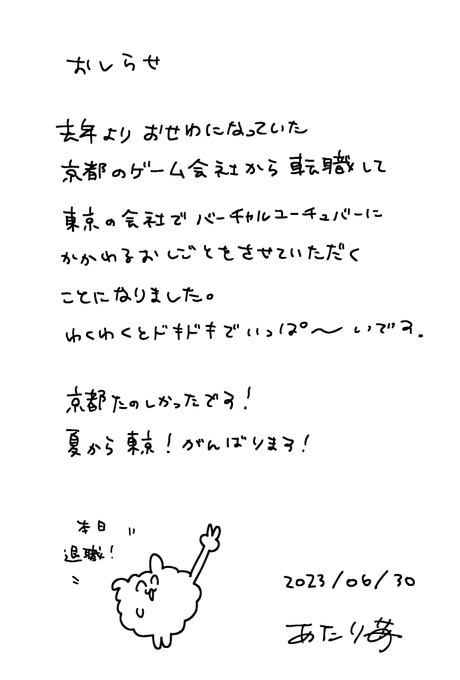 おしらせ
去年より おせわになっていた
京都のゲーム会社から 転職して
東京の会社で バーチャルユーチュバーに
かかわるおしごとをさせていただく
ことになりました。
わくわくとドキドキでいっぱ〜いです.
京都たのしかったです!
夏から東京!がんばります!
本日
退職!
2023/06/30
あたり苺